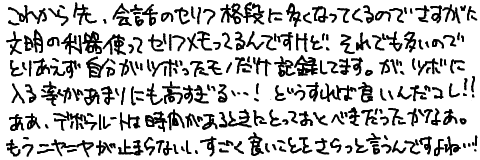 これから先、会話のセリフ格段に多くなってくるのでさすがに
文明の利器使ってセリフメモってるんですけど、それでも多いので
とりあえず自分がツボったモノだけ記録してます。が、ツボに
入る率があまりにも高すぎる…！どうすれば良いんだコレ!!
ああ、デボラルートは時間があるときにとっておくべきだったかなあ。
もうニヤニヤが止まらないし、すごく良いことをさらっと言うんですよね…！